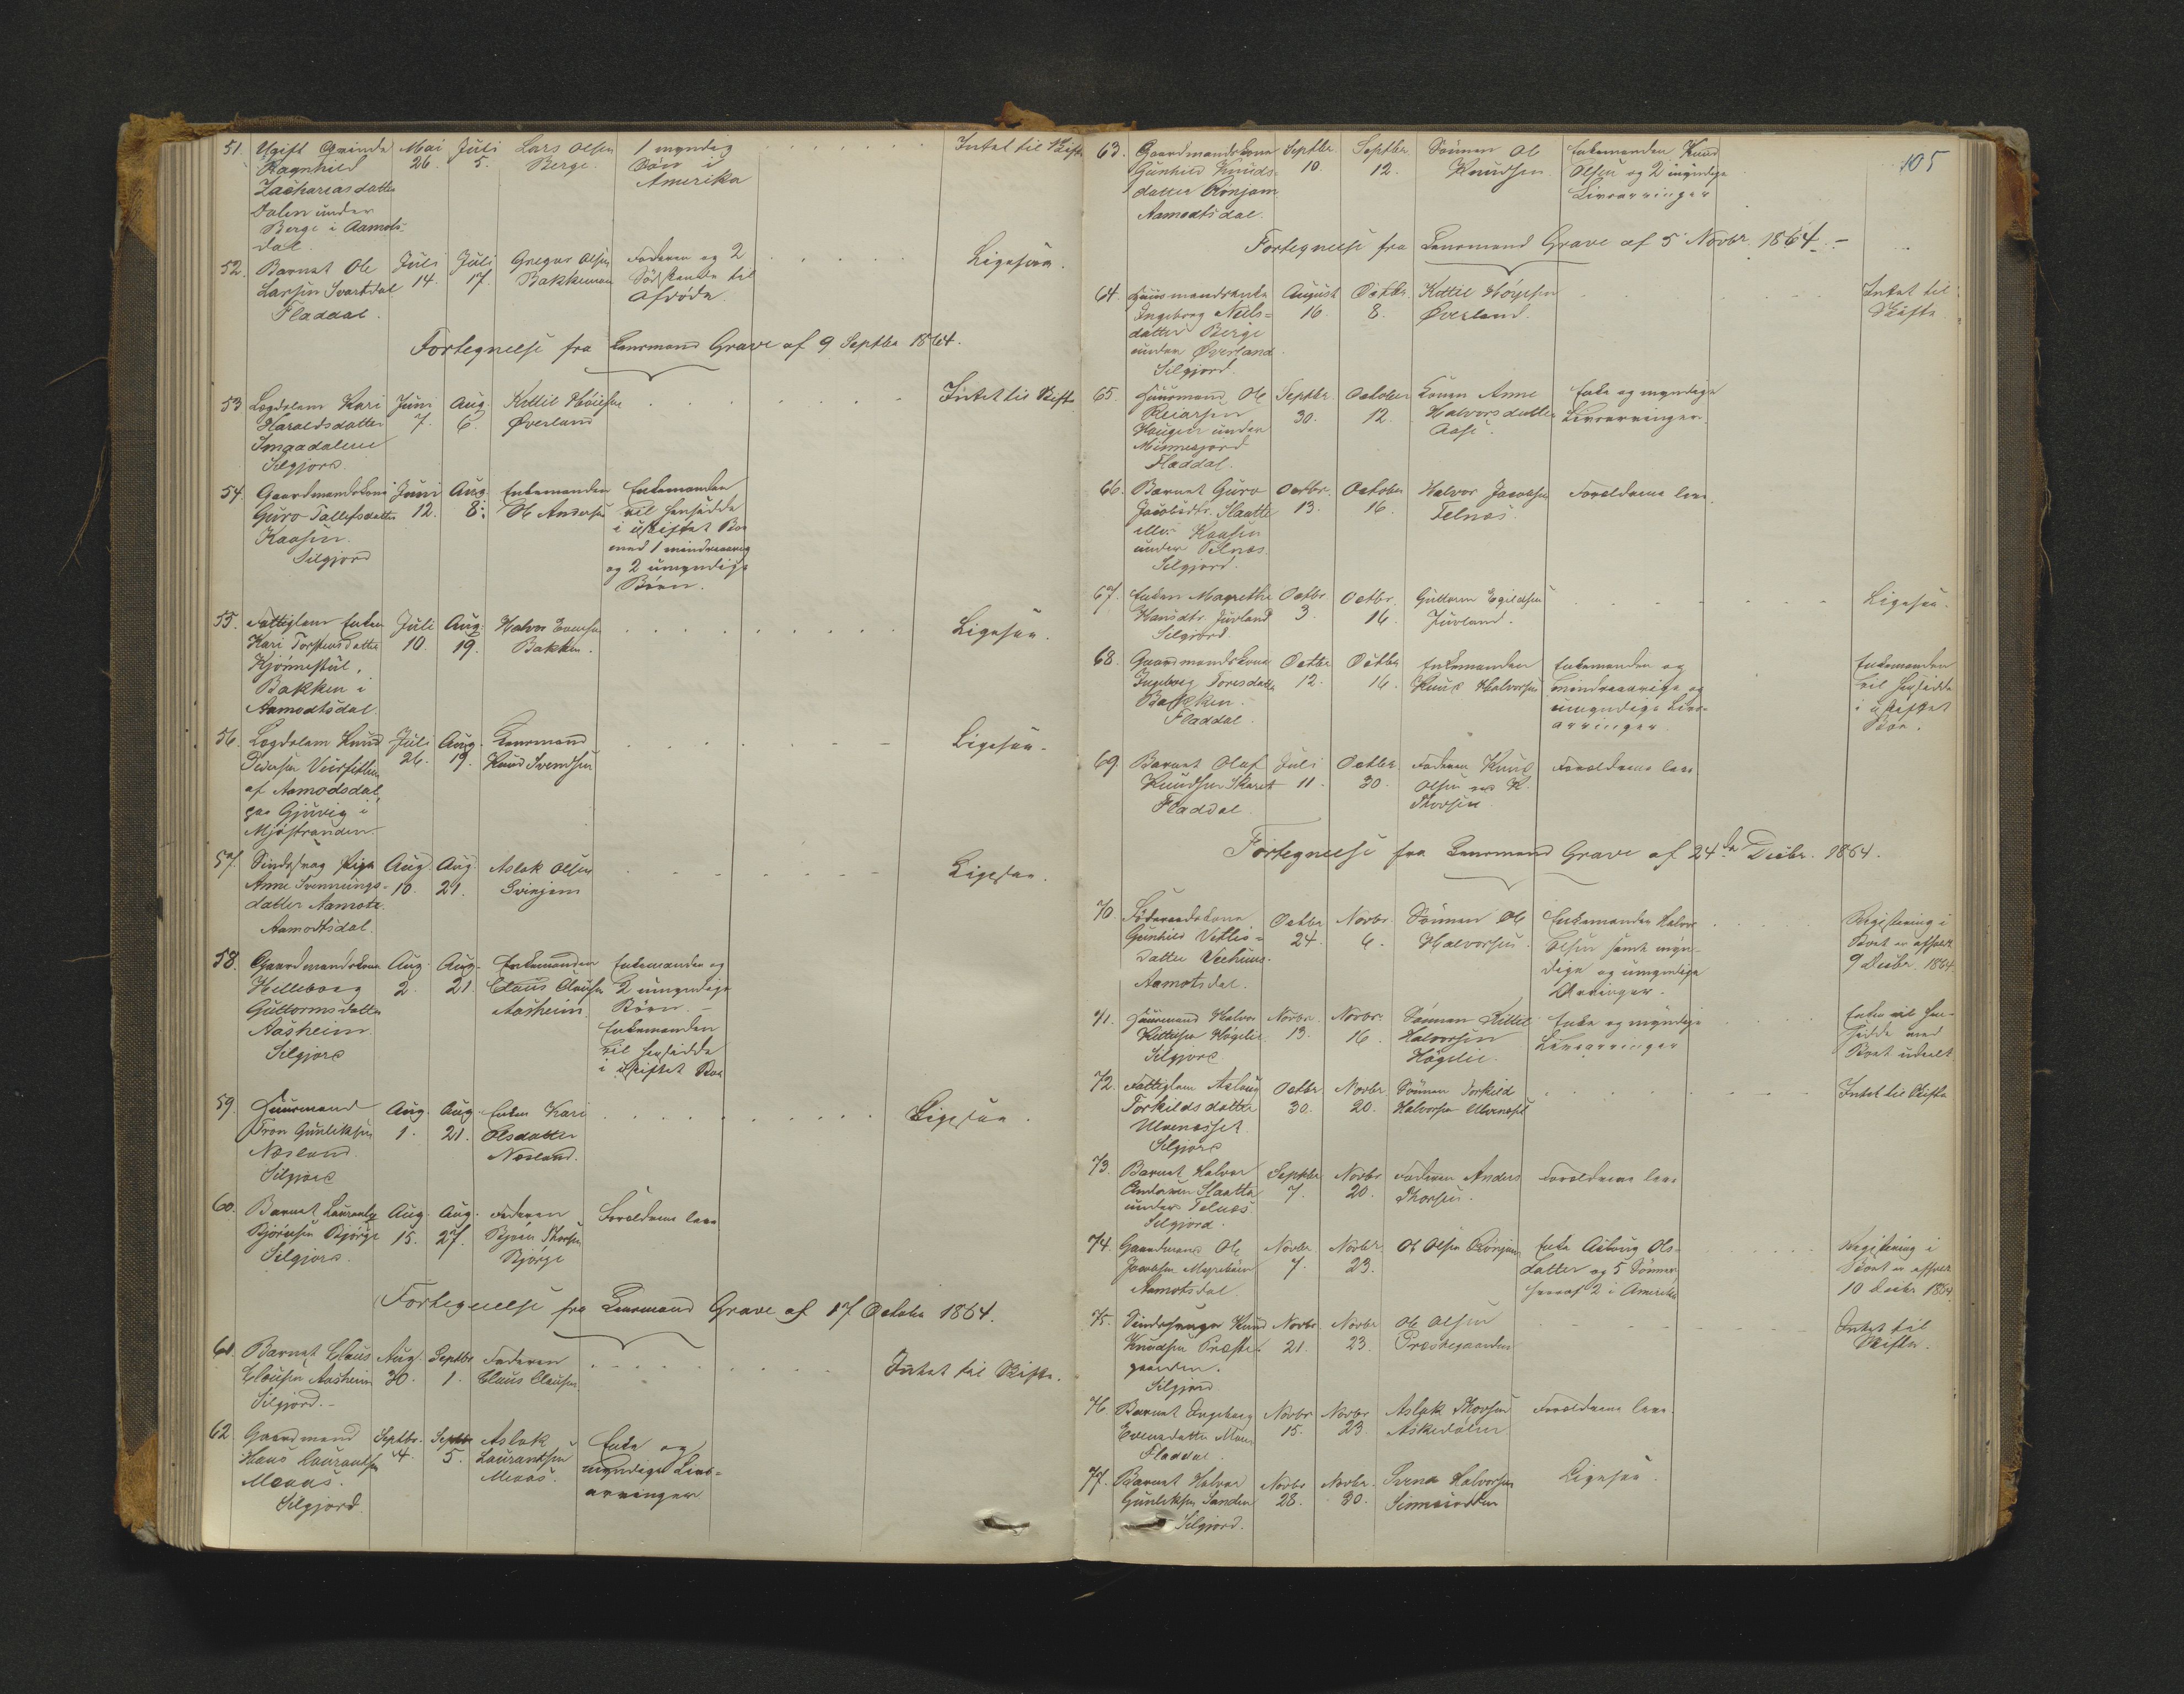 51. Ugift Qvinde Mai Juli Lars Olsen 1 myndig Intet til Skifte
Ragnhild 26. 5. Berge. Søn i
Zachariasdatter Amerika
Dalen under
Berge i Aamots-
dal.
52. Barnet Ole Juli Juli Gregar Olsen Faderen og 2 Ligesaa.
Larsen Svartdal 14. 17. Bakkeman Sødskende til
Fladdal. Afdøde.
Fortegnelse fra Lensmand Grave af 9 Septbr 1864.
53 Lægdslem Kari Juni Aug. Kittil Høiesen Intet til Skifte.
Haraldsdatter 7. 6. Øverland
Silgjord.
54. Gaardmandskone Juni Aug. Enkemanden Enkemanden
Guro Tallefsdatter 12. 8. Ole Andersen vil hensidde
Kaasen. i uskiftet Bo
Silgjord med 1 mindreaarig
og 2 umyndige
Børn.
55. Fattiglem Enken Juli Aug. Halvor Ligesaa.
Kari Torstensdatter 10. 19. Bakken.
Kjønnestul,
Bakken i
Aamodtsdal
56. Lægdslem Knud Juli Aug. Lensmand Ligesaa.
Pedersen 26. 19. Knud Svendsen
af Aamodsdal,
paa Gjuvig i
Mjøstranden
57. Sindssvag Pige Aug. Aug. Aslak Olsen Ligesaa.
Anne Svennungs- 10. 21. Svinjem
datter Aamote.
Aamodtsdal.
58. Gaardmandskone Aug. Aug. Enkemanden Enkemanden og
Helleborg 2. 21. Claus Clausen 2 umyndige
Guttormsdatter Aasheim. Børn. -
Aasheim. Enkemanden
Silgjord vil hensidde
i uskiftet Bo
59. Huusmand Aug. Aug. Enken Kari Ligesaa.
Tron Gunleksen 1. 21. Olsdatter
Næsland. Næsland.
Silgjord
60. Barnet Laurantz Aug. Aug. Faderen Forældrene leve
Bjørnsen Bjørge 15. 27. Bjørn Thorsen
Silgjord. Bjørge
Fortegnelse fra Lensmand Grave af 17 October 1864.
61. Barnet Claus Aug. Septbr Faderen Intet til Skifte.
Clausen Aasheim 30. 1. Claus Clausen
Silgjord. -
62 Gaardmand Septbr. Septbr Aslak Enke og
Hans Laurantsen 4. 5. Laurantsen myndige Livs-
Moaas. Moaas. arvinger
Silgjord
105
63. Gaardmandskone Septbr. Septbr. Sønnen Ole Enkemanden Knud
Gunhild Knuds- 10. 12. Knudsen Olsen og 2 umyndige
datter Rønjom Livsarvinger
Aamodtsdal.
Fortegnelse fra Lensmand Grave af 5 Novbr 1864. -
64. Huusmandsenke August Octbr. Kittil Høyesen Intet til
Ingeborg Niels- 16. 8. Øverland. Skifte
datter Berge
under Øverland.
Silgjord.
65. Huusmand Ole Septbr. October Konen Anne Enke og myndige
Reiarsen 30. 12. Halvorsdatter Livsarvinger.
Haugen under Aase.
Minnesjord
Fladdal.
66. Barnet Guro Octbr. October Halvor Jacobsen Forældrene leve.
Jacobsdtr. Slaatte 13. 16. Telnæs.
eller Kaasen
under Telnæs
Silgjord.
67. Enken Magrethe Octbr. Octbr. Guttorm Egildsen Ligesaa.
Hansdtr. Juvland 3. 16. Juvland.
Silgjord.
68. Gaardmandskone Octbr. Octbr. Enkemanden Enkemanden og Enkemanden
Ingeborg Toresdatter 12. 16. Knud Halvorsen mindreaarige og vil hensidde
Bakken. umyndige Livs- i uskiftet
Fladdal. arvinger Boe.
69 Barnet Olaf Juli Octbr. Faderen Knud Forældrene leve
Knudsen Skaret 11. 30. Olsen ved K.
Fladdal. Thorsen
Fortegnelse fra Lensmand Grave af 24de Decbr. 1864.
70. Føderaadskone Octbr. Novbr. Sønnen Ole Enkemanden Halvor Registrering i
Gunhild Vetle- 24. 6. Halvorsen. Olsen samt myn- Boet er afholdt
datter Veehuus. dige og umyndige 9 Decbr. 1864.
Aamotsdal. Arvinger.
71. Huusmand Halvor Novbr. Novbr. Sønnen Kittil Enke og myndige Enken vil hen-
Kittilsen Høgelie 13. 16. Halvorsen Livsarvinger sidde med
Silgjord. Høgelie. Boet udeelt
72. Fattiglem Aslaug Octbr. Novbr. Sønnen Torkild Intet til Skifte
Torkildsdatter 30. 20. Halvorsen Ulvenæset
Ulvenæsset.
Silgjord
73. Barnet Halvor Septbr. Novbr. Faderen Anders Forældrene leve
Andersen Slaatta 7. 20. Thorsen.
under Telnæs
Silgjord.
74. Gaardmand Ole Novbr. Novbr. Ole Olsen Rønjom Enke Aslaug Ols- Registrering i
Jacobsen 7. 23. datter og 5 Sønner Boet er afholdt
Aamotsdal. hvoraf 2 i Amerika 10 Decbr 1864
75. Sindssvage Knud Novbr. Novbr. Ole Olsen Intet til
Knudsen Præste- 21. 23. Præstegaarden Skifte.
gaarden.
Silgjord
76. Barnet Ingeborg Novbr. Novbr. Aslak Thorsen Forældrene leve.
Evensdatter Moen 15. 23. Askedalen
Fladdal.
77. Barnet Halvor Novbr. Novbr. Svend Halvorsen Ligesaa.
Gunleksen Sanden 28. 30.
Silgjord.